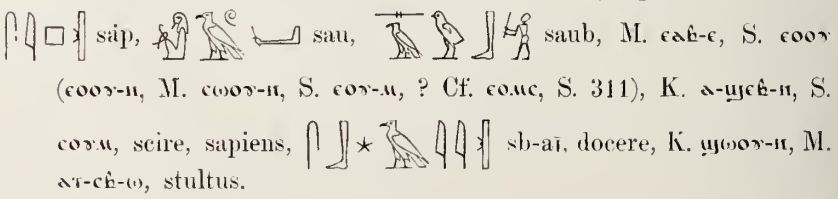 𓋴𓇋𓊪𓏛 sáp, 𓅓 sau, saub, M. ⲥⲁⲃ-ⲉ, S. ⲥⲟⲟⲩ
(ⲥⲟⲟⲩ-ⲛ, M. ⲥⲱⲟⲩ-ⲛ, S. ⲥⲟⲩ-ⲙ, ? Cf. ⲥⲟⲙⲥ, S. 311), K. ⲁ-ϣⲉⲃ-ⲛ, S.
ⲥⲟⲩⲙ, scire, sapiens, 𓋴𓃀𓇼𓄿𓇋𓇋𓏛 sb-aī, docere, K. ϣⲱⲟⲩ-ⲛ, M.
ⲁⲧ-ⲥⲃ-ⲱ, stultus.